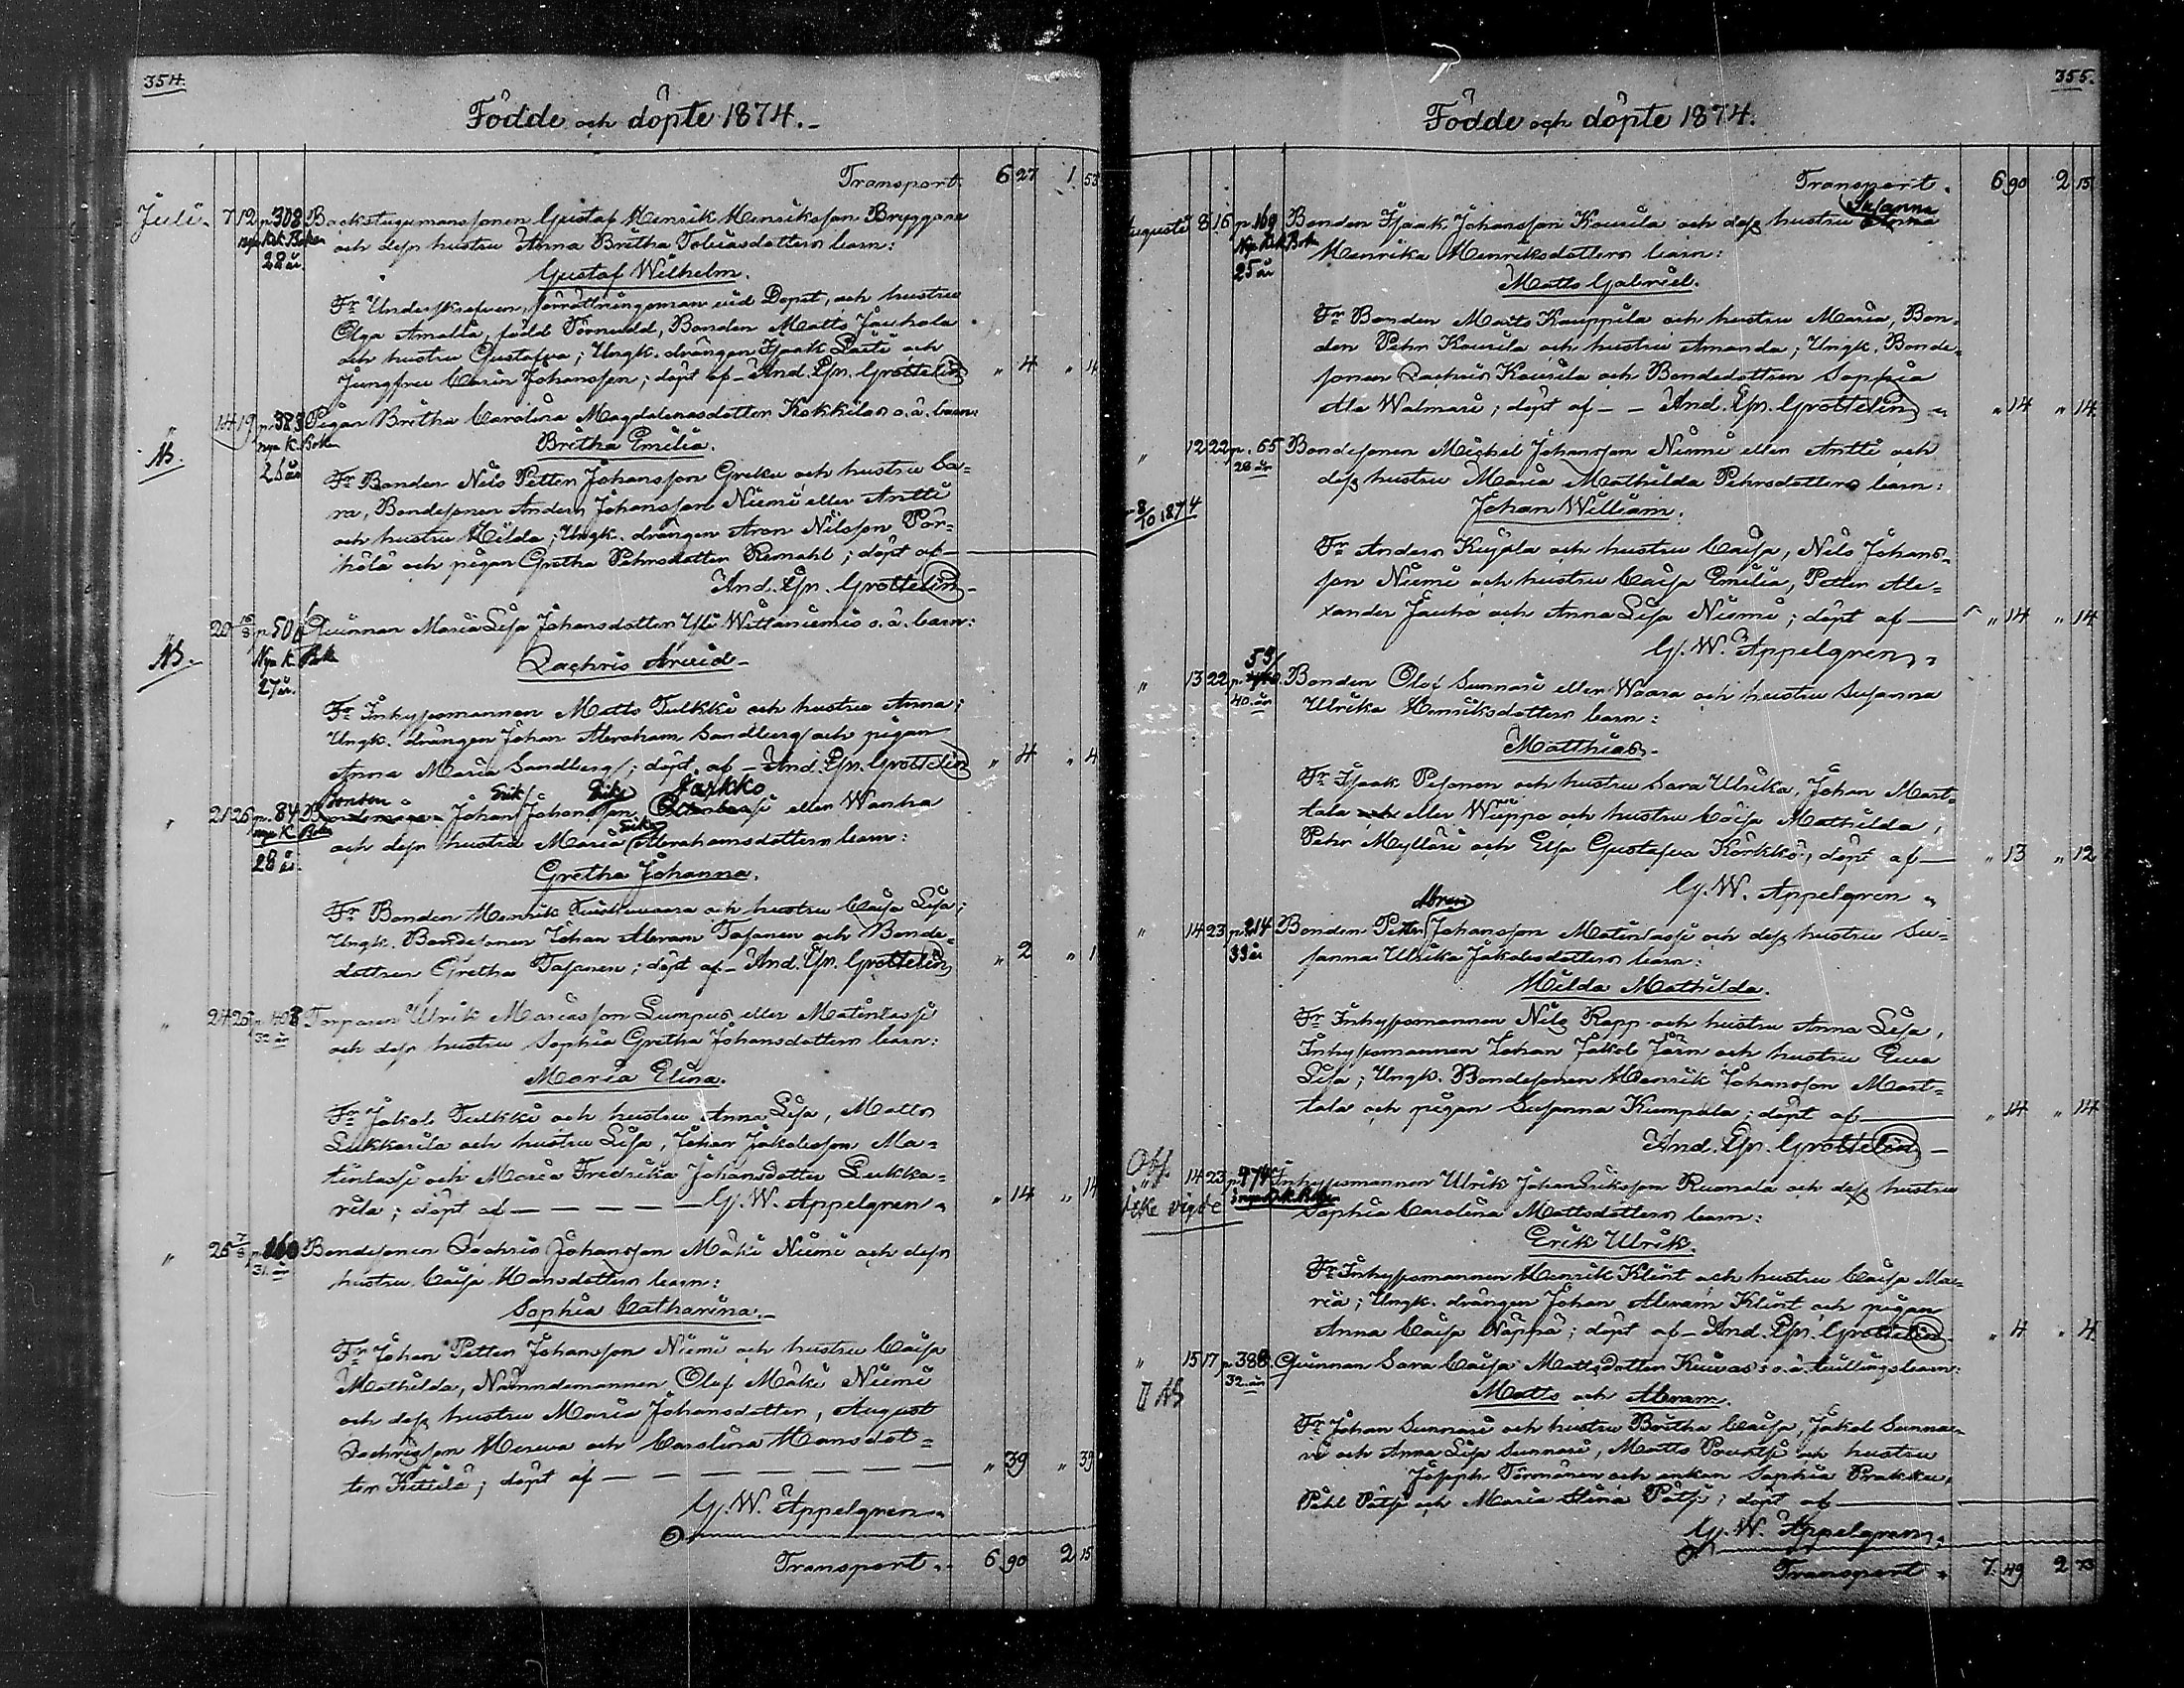 354.
Födde och döpte 1874.
Transport. 6 27 1. 53
Juli. 7 12 p. 308 Backstugumanssonen Gustaf Henrik Henriksson Bryggare
nya Krk. Boken och dess hustru Anna Britha Tobiasdotters barn:
28 år. Gustaf Wilhelm.
Fr Underskrefven, förrättningsman vid Dopet, och hustru
Olga Amalia, född Törnudd, Bonden Matts Jauhola
och hustru Gustafva; Ungk. drängen Isaak Laiti och
Jungfru Carin Johansson; döpt af - And. Lor. Grottelin " 4 " 4
" 14 19 p. 383 Pigan Britha Carolina Magdalenasdotter Kokkilas o. ä. barn:
nya K. Boken Britha Emilia.
Ab. 28 år Fr Bonden Nils Petter Johansson Greku och hustru Ca-
ra, Bondesonen Anders Johansson Niemi eller Antti
och hustru Hilda; Ungk. drängen Aron Nilsson Pör-
hölä och pigan Gretha Pehrsdotter Remahl; döpt af —
And. Lor. Grottelin -
20 p. 501 Qvinnan Maria Lisa Johansdotter Yli Wittaniemis o. ä. barn:
Ab. Nya K. Bok Zachris Arvid -
27 år.
Fr Inhysomannen Matts Tulkki och hustru Anna;
Ungk. drängen Johan Abraham Sandberg och pigan
Anna Maria Sandberg; döpt af - And. Lor. Grottelin " 4 " 4
Bonden Erik Eriks Jarkko
" 21 26 p. 84 Johan Johansson eller Wanha
nya K. Boken och dess hustru Maria Eriks Abrahamsdotters barn:
28 år. Gretha Johanna.
Fr Bonden Henrik Tuiskuvaara och hustru Caisa Lisa;
Ungk. Bondesonen Johan Abram Tasanen och Bonde-
dottren Gretha Tasanen; döpt af - And. Lor. Grottelin " 2 " 1
" 24 26 p. 403 Torparen Ulrik Mariasson Lumpus eller Matinlassi
32 år och dess hustru Sophia Gretha Johansdotters barn:
Maria Elina.
Fr Jakob Tulkki och hustru Anna Lisa, Matts
Lukkarila och hustru Lisa, Johan Jakobsson Ma-
tinlassi och Maria Fredrika Johansdotter Lukka-
rila; döpt af — — — — — G. W. Appelgren " 14 " 14
" 25 7/8 p. 160 Bondesonen Zachris Johansson Mäki Niemi och dess
31. år hustru Caisa Hansdotters barn:
Sophia Catharina. -
Fr Johan Petter Johansson Niemi och hustru Caisa
Mathilda, Nämndemannen Olof Mäki Niemi
och dess hustru Maria Johansdotter, August
Zachrisson Hirvi och Carolina Hansdot-
ter Kittilä; döpt af — — — — — — — " 39 " 39
G. W. Appelgren
Transport. 6 90 2 15
355.
Födde och döpte 1874.
Transport. 6 90 2 15
Susanna
Augusti 8 16 p. 169 Bonden Isaak Johansson Kourila och dess hustru Anna
Nya Krk Boken Henrika Henriksdotters barn:
25 år Matts Gabriel.
Fr Bonden Matts Kauppila och hustru Maria, Bon-
den Pehr Kourila och hustru Amanda; Ungk. Bonde-
sonen Zachris Kourila och Bondedottren Sophia
Ala Walmari; döpt af - - And. Lor. Grottelin " 14 " 14
" 12 22 p. 65 Bondesonen Michel Johansson Niemi eller Antti och
28 år dess hustru Maria Mathilda Pehrsdotters barn:
8/10 1874 Johan William.
Fr Anders Kujala och hustru Caisa, Nils Johans-
son Niemi och hustru Caisa Emilia, Petter Ale-
xander Jauho och Anna Lisa Niemi; döpt af — " 14 " 14
G. W. Appelgren "
531
" 13 22 p. Bonden Olof Sunnari eller Waara och hustru Susanna
40. år Ulrika Henriksdotters barn:
Matthias -
Fr Isaak Pesonen och hustru Sara Ulrika, Johan Mart-
tala och eller Wiippo och hustru Caisa Mathilda,
Pehr Mylläri och Elsa Gustafva Körkkö; döpt af — " 13 " 12
G. W. Appelgren "
Abram
" 14 23 p. 214 Bonden Petter Johansson Matinlassi och dess hustru Su-
33 år sanna Ulrika Jakobsdotters barn:
Hilda Mathilda.
Fr Inhysomannen Nils Rapp och hustru Anna Lisa,
Inhysomannen Johan Jakob Jörn och hustru Eva
Lisa; Ungk. Bondesonen Henrik Johansson Mart-
tala och pigan Susanna Kumpula; döpt af — " 14 " 14
And. Lor. Grottelin -
Obs. 14 23 p. 474 Inhysomannen Ulrik Johan Eriksson Ruonala och dess hustru
icke vigde nya Krk. Boken Sophia Carolina Mattsdotters barn:
Erik Ulrik.
Fr Inhysomannen Henrik Klint och hustru Caisa Ma-
ria; Ungk. drängen Johan Abram Klint och pigan
Anna Caisa Näppä; döpt af - And. Lor. Grottelin " 4 " 4
" 15 17 p. 388 Qvinnan Sara Caisa Mattsdotter Kuivas's o. ä. tvillingsbarn:
II Ab 32. år Matts och Abram.
Fr Johan Sunnari och hustru Britha Caisa, Jakob Sunna-
ri och Anna Lisa Sunnari, Matts Pourtsi och hustru
Joseph Törmänen och enkan Sophia Prakku,
Påhl Pätsi och Maria Stina Pätsi; döpt af —
G. W. Appelgren
Transport " 7. 49 2 73